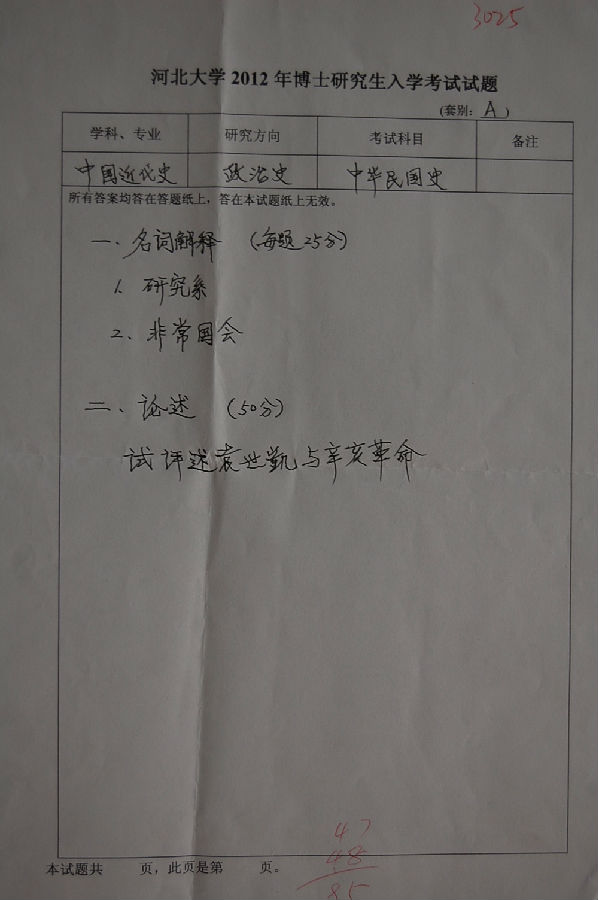 3025
河北大学 2012 年博士研究生入学考试试题
(套别: A )
学科、专业 研究方向 考试科目 备注
中国近代史 政治史 中华民国史
所有答案均答在答题纸上，答在本试题纸上无效。
一、名词解释 (每题25分)
1. 研究系
2、非常国会
二、论述 (50分)
试评述袁世凯与辛亥革命
47
48
85
本试题共 页，此页是第 页。